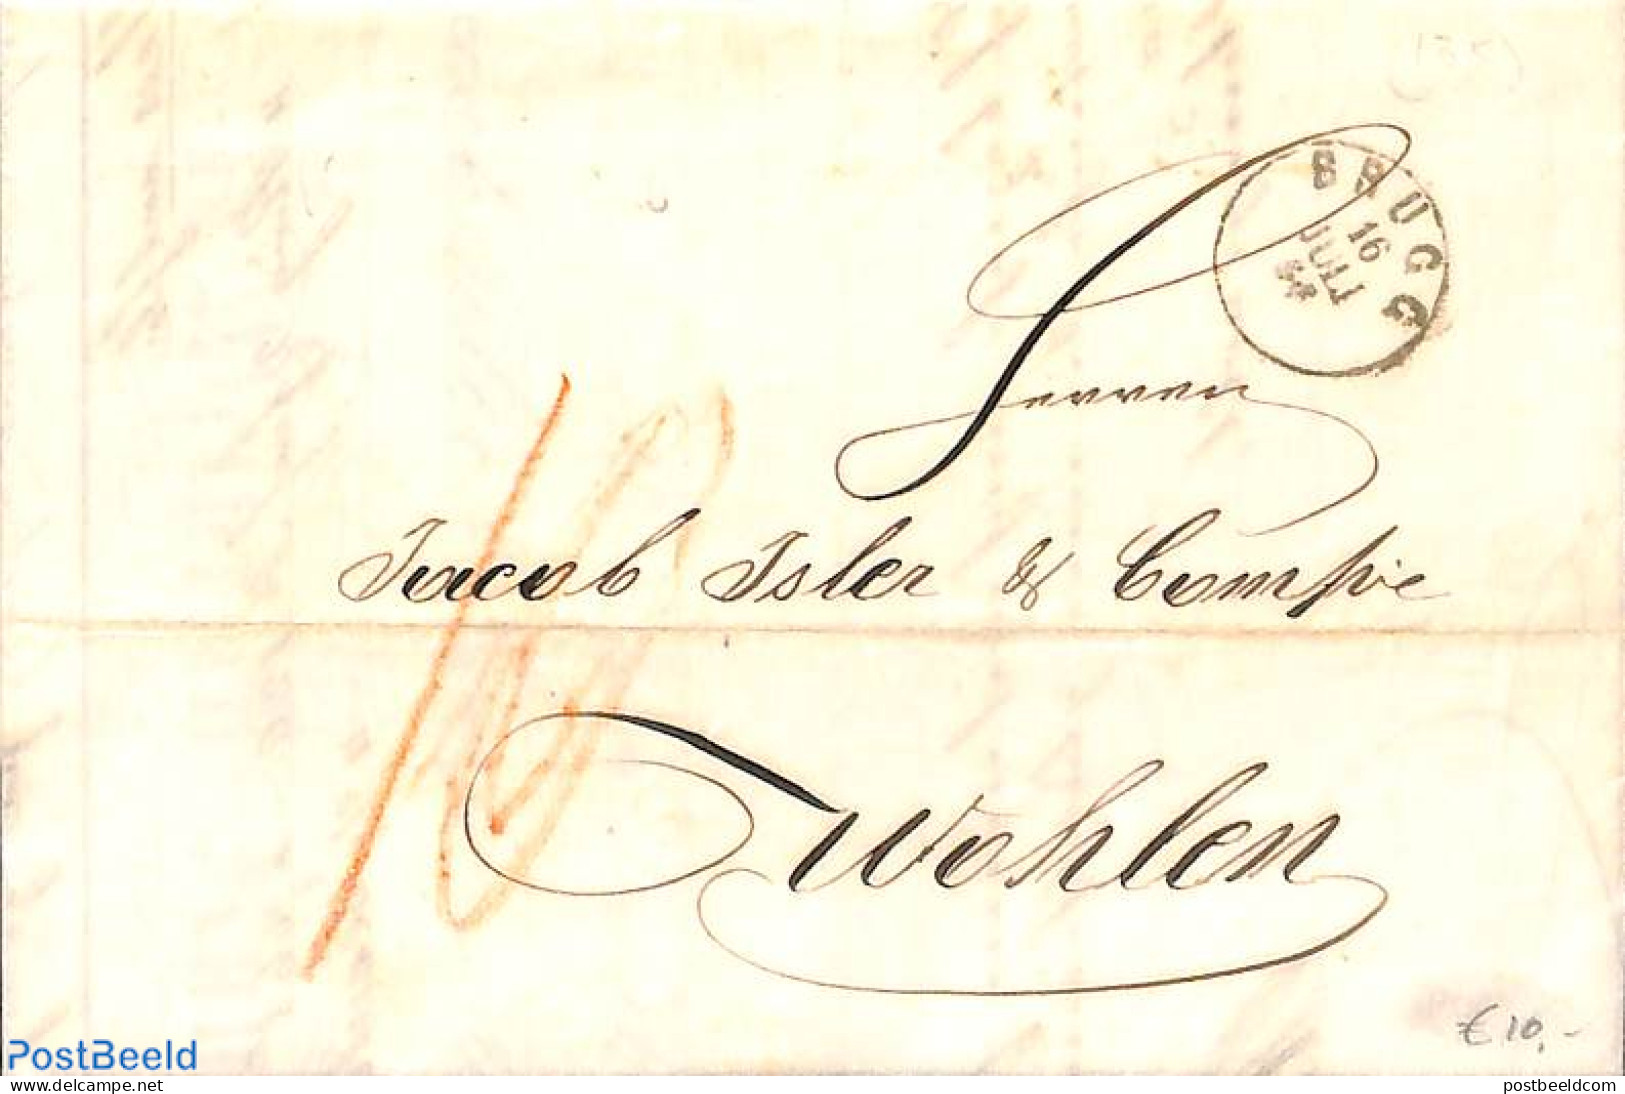 (185)
BRUGG
16
JULI
54
Herren
Jacob Isler & Compie
10
Wohlen
€ 10,-
PostBeeld
www.delcampe.net
postbeeldcom